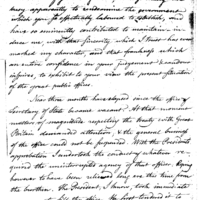 every opportunity to undermine the government
which you so effectually laboured to establish, and
have so eminently contributed to maintain in
once me, with that fervency which I trust has ever
marked my character, and that frankness which
an entire confidence in your judgement & candour
inspires, to exhibit to your view the present situation
of the great public offices.
Near three months have elapsed since the office of
Secretary of State became vacant. At that moment
matters of magnitude respecting the treaty with Great
Britain demanded attention, & the general business
of the office could not be postponed. With the President's
approbation I undertook the conducting whatever re-
quired the minister's agency of that office: Hoping
however to have been released long ere this time from
the burthen. The President, I know, took immediate
to fill the office. He first tendered to